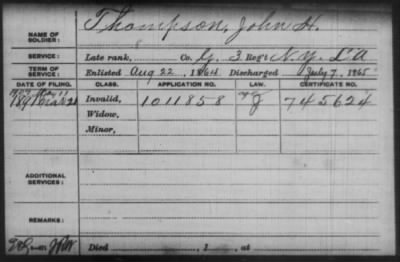 NAME OF SOLDIER: Thompson, John H.
SERVICE: Late rank, Co. G. 3 Reg't N.Y. L't A
TERM OF SERVICE: Enlisted Aug 22, 1864 Discharged July 7, 1865
DATE OF FILING. CLASS. APPLICATION NO. LAW. CERTIFICATE NO.
1891 Invalid, 1011858 J 745624
Widow,
Minor,
ADDITIONAL SERVICES:
REMARKS:
Died , 1 , at